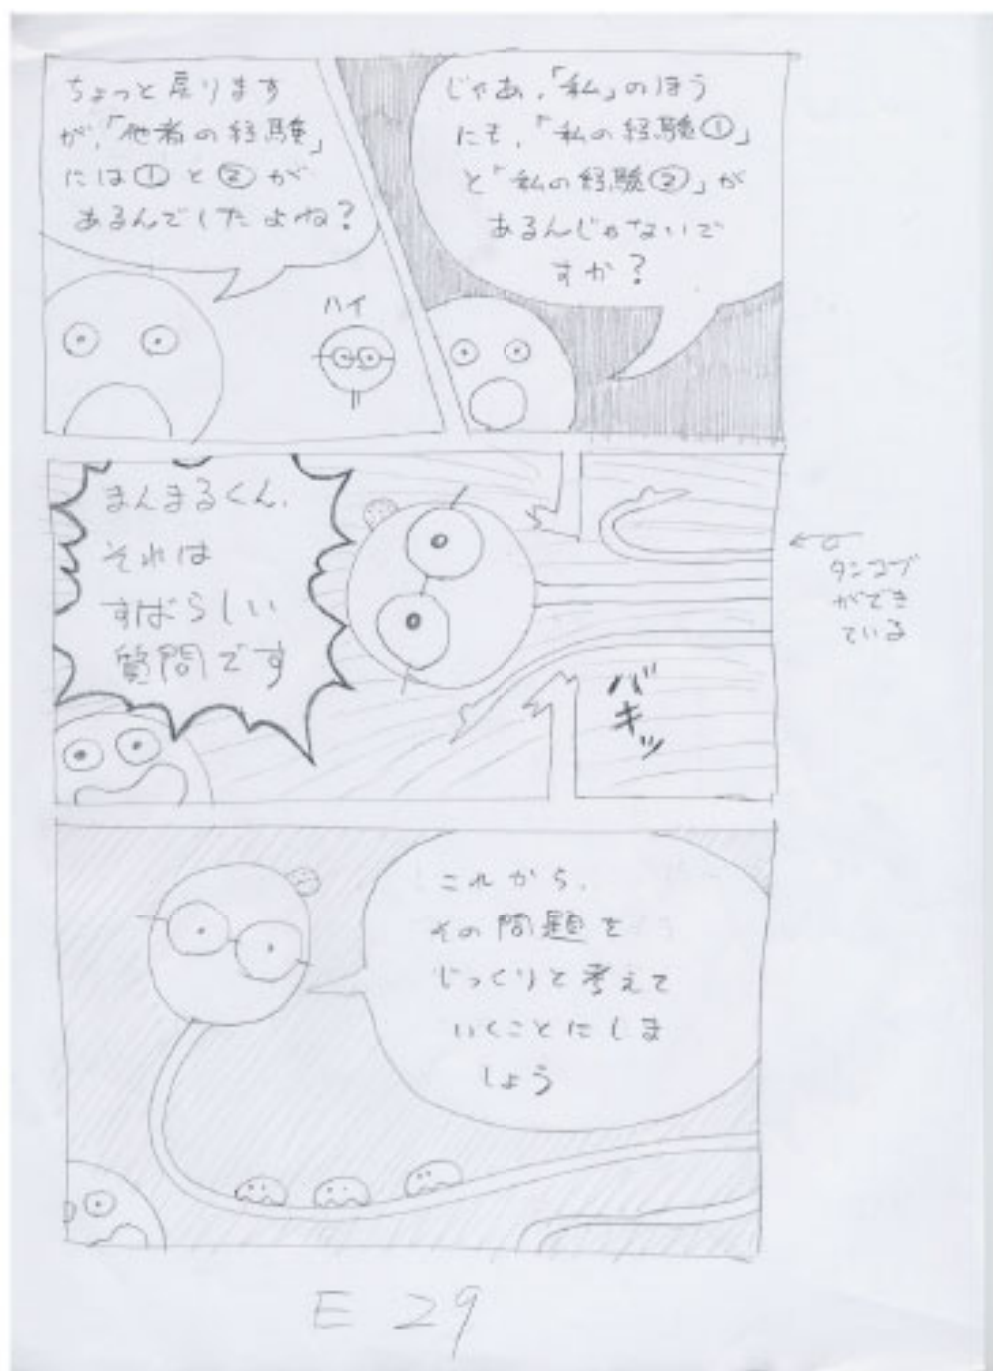 ちょっと戻ります
が、「他者の経験」
には①と②が
あるんでしたよね?
ハイ
じゃあ、「私」のほう
にも、「私の経験①」
と「私の経験②」が
あるんじゃないで
すか?
まんまるくん、
それは
すばらしい
質問です
バキッ
タンコブ
ができ
ている
これから、
その問題を
じっくりと考えて
いくことにしま
しょう
E 29